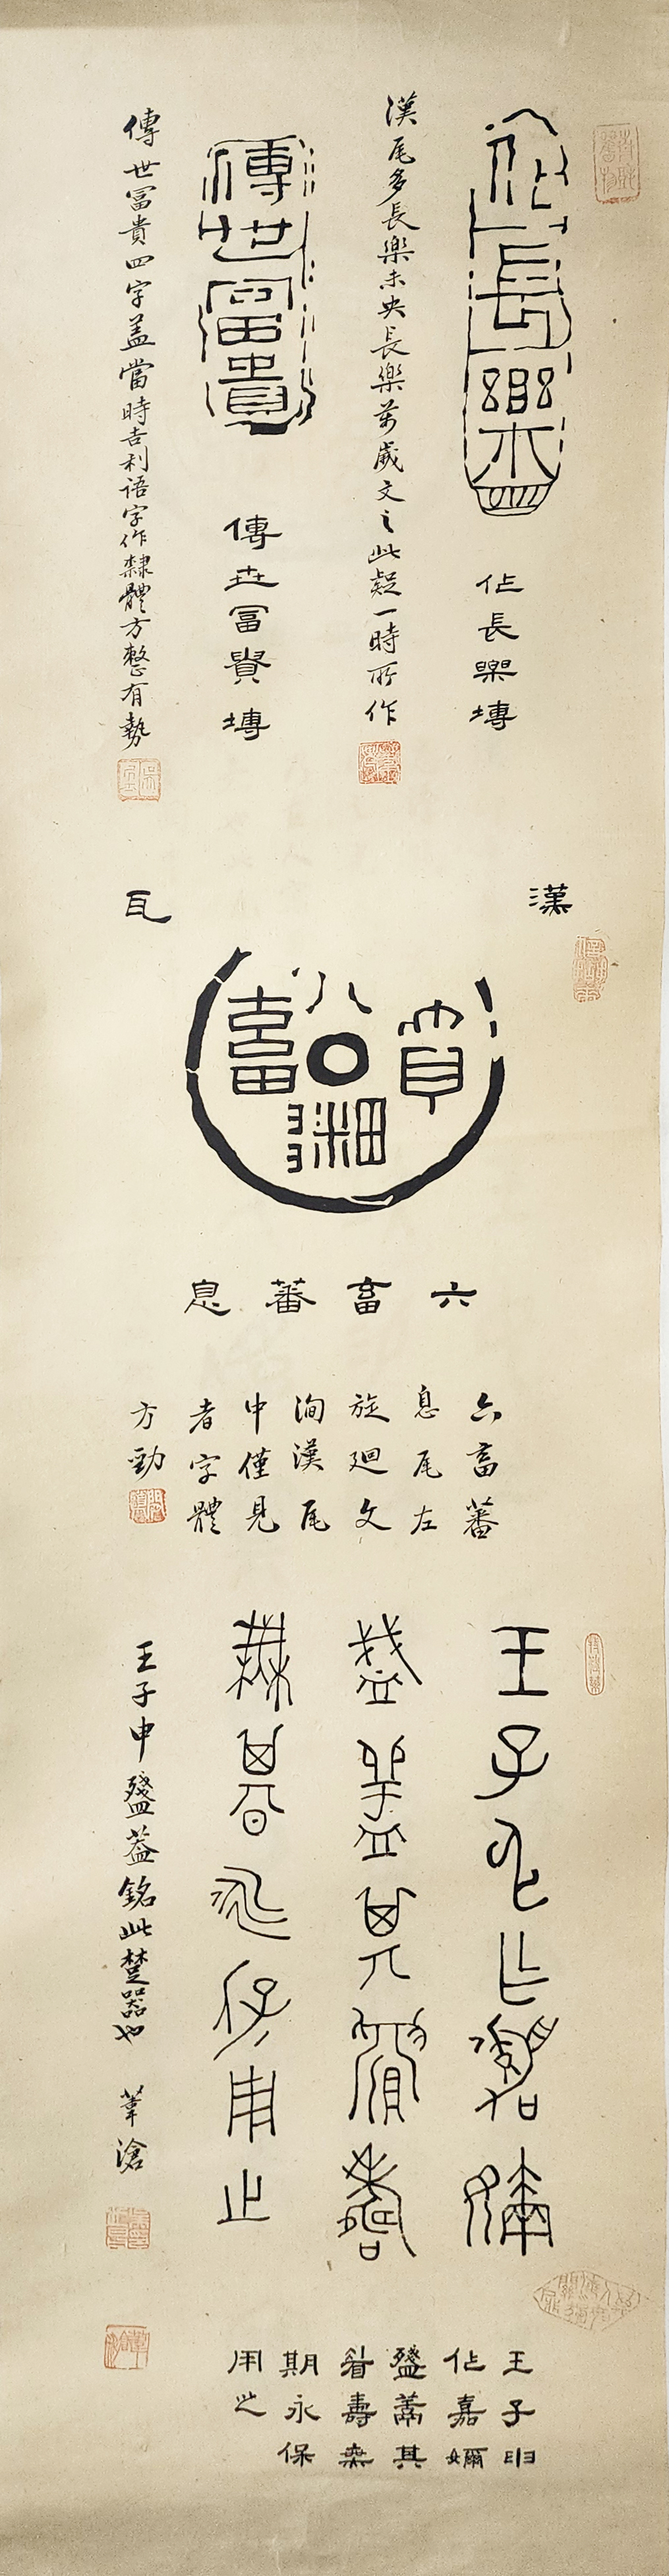 佀長樂
佀長樂塼
漢瓦多長樂未央長樂萬歲文之此疑一時所作
傳世富貴
傳世富貴塼
傳世冨貴四字蓋當時吉利語字作隸體方整有勢
漢瓦
六畜蕃息
六畜蕃息
六畜蕃
息瓦左
旋迴文
洵漢瓦
中僅見
者字體
方勁
王子申作嘉嬭
盞蓋其眉壽
無期永保用止
王子申盞蓋銘此楚器也 葦滄
王子申
作嘉嬭
盞蓋其
眉壽無
期永保
用之